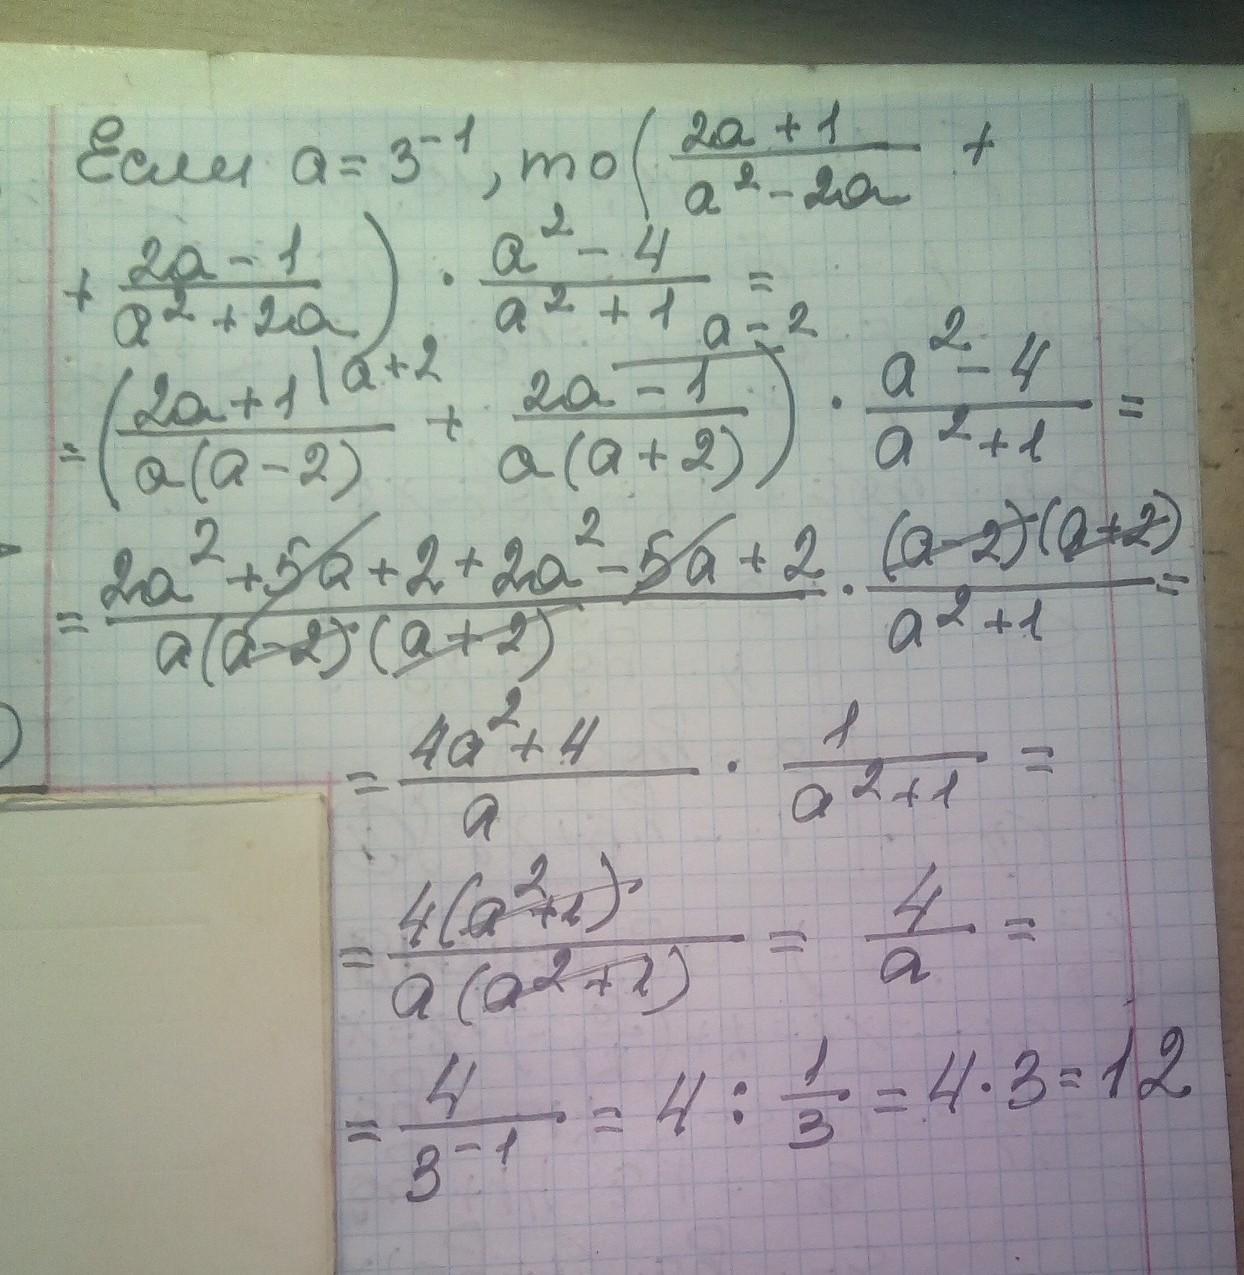 Если a = 3⁻¹, то ( (2a + 1)/(a² - 2a) +
+ (2a - 1)/(a² + 2a) ) · (a² - 4)/(a² + 1) =
= ( (2a + 1 |a+2)/(a(a - 2)) + (2a - 1 |a-2)/(a(a + 2)) ) · (a² - 4)/(a² + 1) =
= (2a² + 5a + 2 + 2a² - 5a + 2)/(a(a-2)(a+2)) · ((a-2)(a+2))/(a² + 1) =
= (4a² + 4)/a · 1/(a² + 1) =
= (4(a² + 1))/(a(a² + 1)) = 4/a =
= 4/3⁻¹ = 4 : 1/3 = 4 · 3 = 12